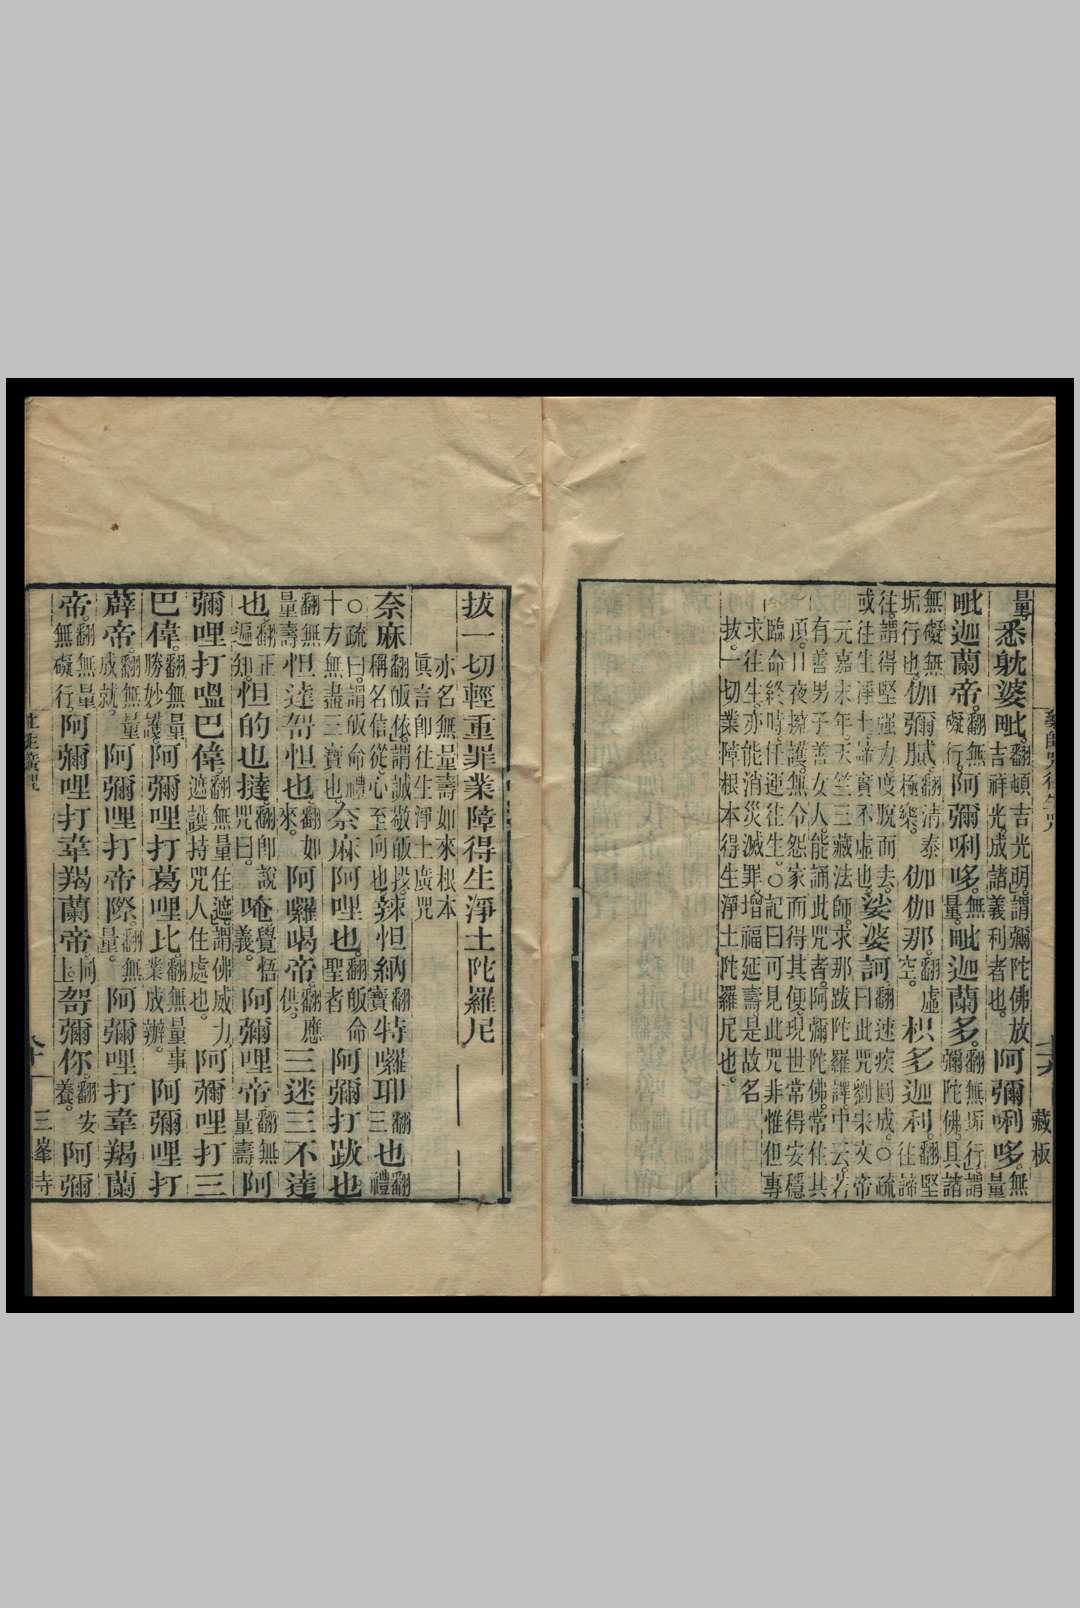 量。悉躭婆毗。翻頓吉光萌。謂彌陀佛放吉祥光。成諸義利者也。阿彌唎哆。無量
毗迦蘭帝。翻無礙行。阿彌唎哆。無量。毗迦蘭多。翻無垢行。謂彌陀佛。具諸
無礙無垢行也。伽彌膩。極樂。伽伽那。虛空。枳多迦利。翻堅往諦
往。謂得堅强力。度脫而去。娑婆訶。翻速疾圓成。○疏
或往生淨土。諦實不虛也。曰此咒劉宋文帝
元嘉末年。天竺三藏法師。求那跋陀羅譯。中云。若
有善男子善女人。能誦此咒者。阿彌陀佛。常住其
頂。日夜擁護。無令怨家而得其便。現世常得安穩
臨命終時。任運往生。○記曰。可見此咒非惟但專
求往生。亦能消災滅罪。增福延壽。是故名
拔一切業障根本得生淨土陀羅尼也。
藏板
拔一切輕重罪業障得生淨土陀羅尼
亦名無量壽如來根本
眞言卽往生淨土廣咒
奈麻翻皈依。謂誠敬皈投。稱名信從。心至向也。辣怛納翻寶特囉耶翻三也翻禮
○疏曰。謂皈命禮十方無盡三寶也。奈麻阿哩也。翻皈命聖者阿彌打跋也
翻無量壽怛達哿怛也翻如來。阿囉喝帝。翻應供。三迷三不達
也翻正遍知。怛的也撻翻卽說咒曰。唵覺悟義。阿彌哩帝翻無量壽阿
彌哩打嗢巴偉。翻無量住。謂佛威力遮護持咒人住處也。阿彌哩打三
巴偉。翻無量勝妙護。阿彌哩打葛哩比。翻無量事業成辦。阿彌哩打
薜帝。翻無量成就。阿彌哩打帝際。翻無量。阿彌哩打韋羯蘭
帝。翻無量無礙行。阿彌哩打韋羯蘭帝。同上。哿彌你。翻安養。阿彌
三峯寺